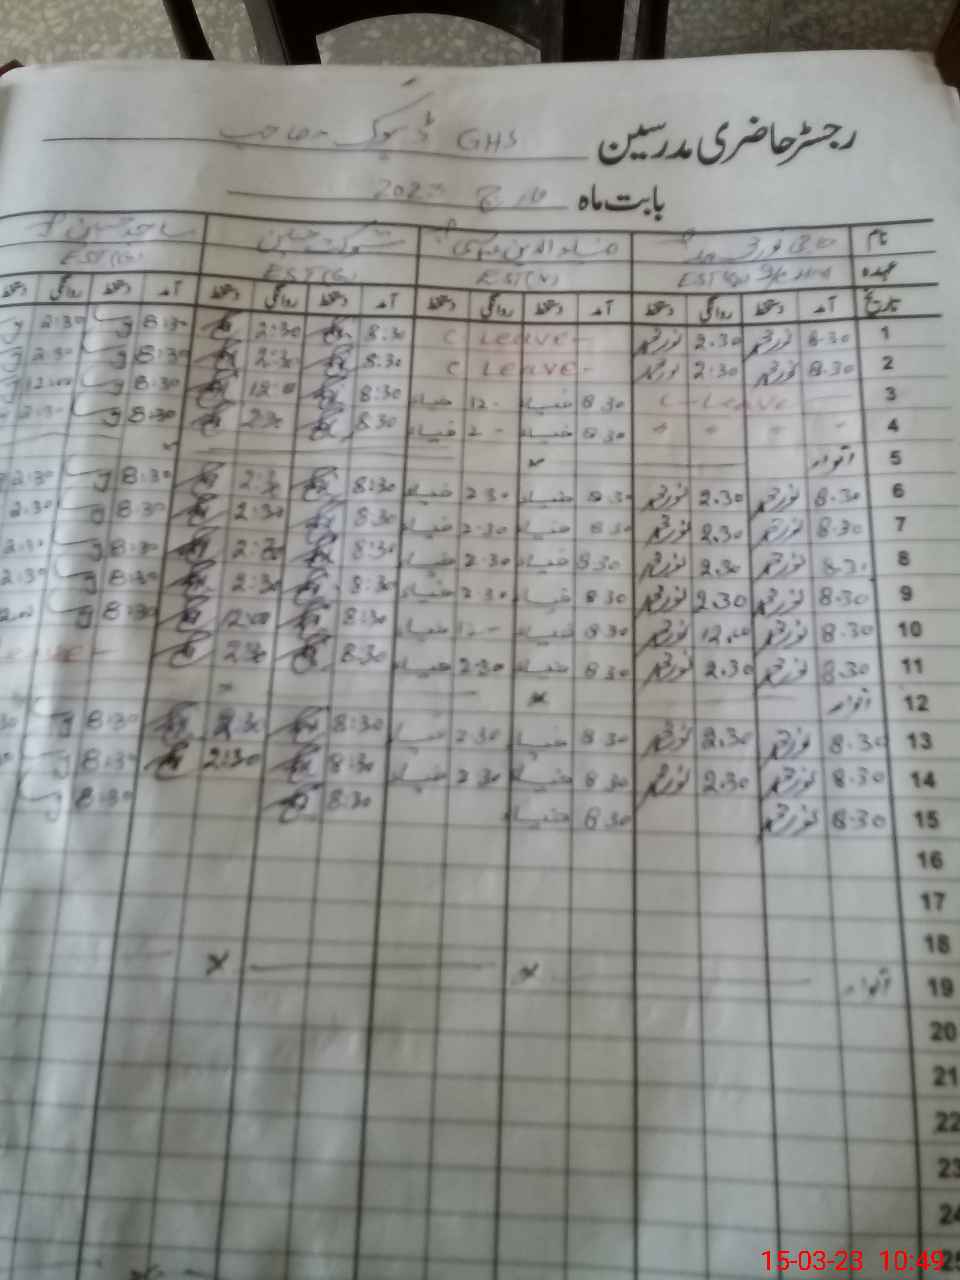 رجسٹر حاضری مدرسین GHS ڈھوک صاحب
بابت ماہ مارچ 2023
نام ضیاء الدین شوکت حسین ساجد حسین
عہدہ EST(G) EST(V) EST(G) EST(G)
تاریخ آمد دستخط روانگی دستخط آمد دستخط روانگی دستخط آمد دستخط روانگی دستخط آمد دستخط روانگی دستخط
1 8.30 نور محمد 2.30 نور محمد C Leave - 8.30 2:30 8:30 2:30
2 8.30 نور محمد 2.30 نور محمد C Leave - 8.30 8:30 2:30
3 C-Leave 8.30 ضیاء 12- ضیاء 8:30 12:00 8:30 12:00
4 " " " 8.30 ضیاء 2- ضیاء 8.30 2:30 8:30 2:30
5 اتوار
6 8.30 نور محمد 2.30 نور محمد 8.30 ضیاء 2.30 ضیاء 8:30 8:30 2:30
7 8.30 نور محمد 2.30 نور محمد 8.30 ضیاء 2.30 ضیاء 8.30 2:30 8:30 2.30
8 8.30 نور محمد 2.30 نور محمد 8.30 ضیاء 2.30 ضیاء 8:30 2:30 8:30 2:30
9 8.30 نور محمد 2.30 نور محمد 8.30 ضیاء 2.30 ضیاء 8:30 2:30 8:30 2:30
10 8.30 نور محمد 12.00 نور محمد 8.30 ضیاء 12- ضیاء 8:30 12:00 8:30
11 8.30 نور محمد 2.30 نور محمد 8.30 ضیاء 2.30 ضیاء 8:30 2:30
12 اتوار
13 8.30 نور محمد 2.30 نور محمد 8.30 ضیاء 2.30 ضیاء 8:30 2:30 8:30
14 8.30 نور محمد 2.30 نور محمد 8.30 ضیاء 2.30 ضیاء 8:30 2:30 8:30
15 8.30 نور محمد 8.30 ضیاء 8:30 8:30
16
17
18
19 اتوار
20
21
22
23
24
25
15-03-23 10:49